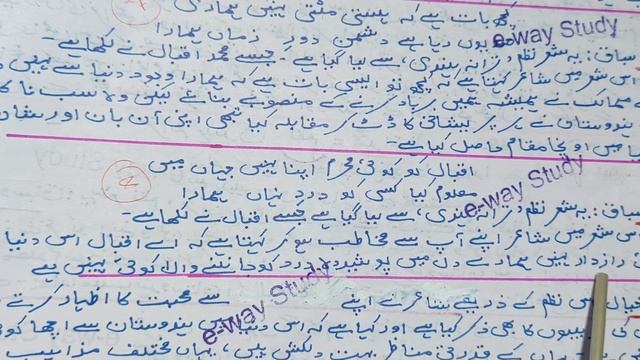 کچھ بات ہے کہ ہستی مٹتی نہیں ہماری
صدیوں رہا ہے دشمن دور زماں ہمارا
سیاق: یہ شعر نظم "ترانہ ہندی" سے لیا گیا ہے جسے محمد اقبال نے لکھا ہے۔
اس شعر میں شاعر کہتا ہے کہ کچھ تو ایسی بات ہے کہ ہمارا وجود دنیا سے نہیں
ممالک نے ہمیشہ ہمیں برباد کرنے کے منصوبے بنائے لیکن وہ سب
ہندوستان نے ہر پریشانی کا ڈٹ کر مقابلہ کیا تبھی اپنی آن بان اور شان
میں اونچا مقام حاصل کیا ہے۔
اقبال کوئی محرم اپنا نہیں جہاں میں
معلوم کیا کسی کو درد نہاں ہمارا
سیاق: یہ شعر نظم "ترانہ ہندی" سے لیا گیا ہے جسے اقبال نے لکھا ہے۔
اس شعر میں شاعر اپنے آپ سے مخاطب ہو کر کہتا ہے کہ اے اقبال اس دنیا
رازدار نہیں ہمارے دل میں پوشیدہ درد کو جاننے والا کوئی نہیں ہے
اس نظم کے ذریعے شاعر نے اپنے سے محبت کا اظہار کرتے
کا بھی ذکر کیا ہے اور کہا ہے کہ اس دنیا میں ہندوستان سے اچھا کوئی
کے قدرتی مناظر بہت دلکش ہیں، یہاں مختلف مذاہب
e-way Study
e-way Study
e-way Study